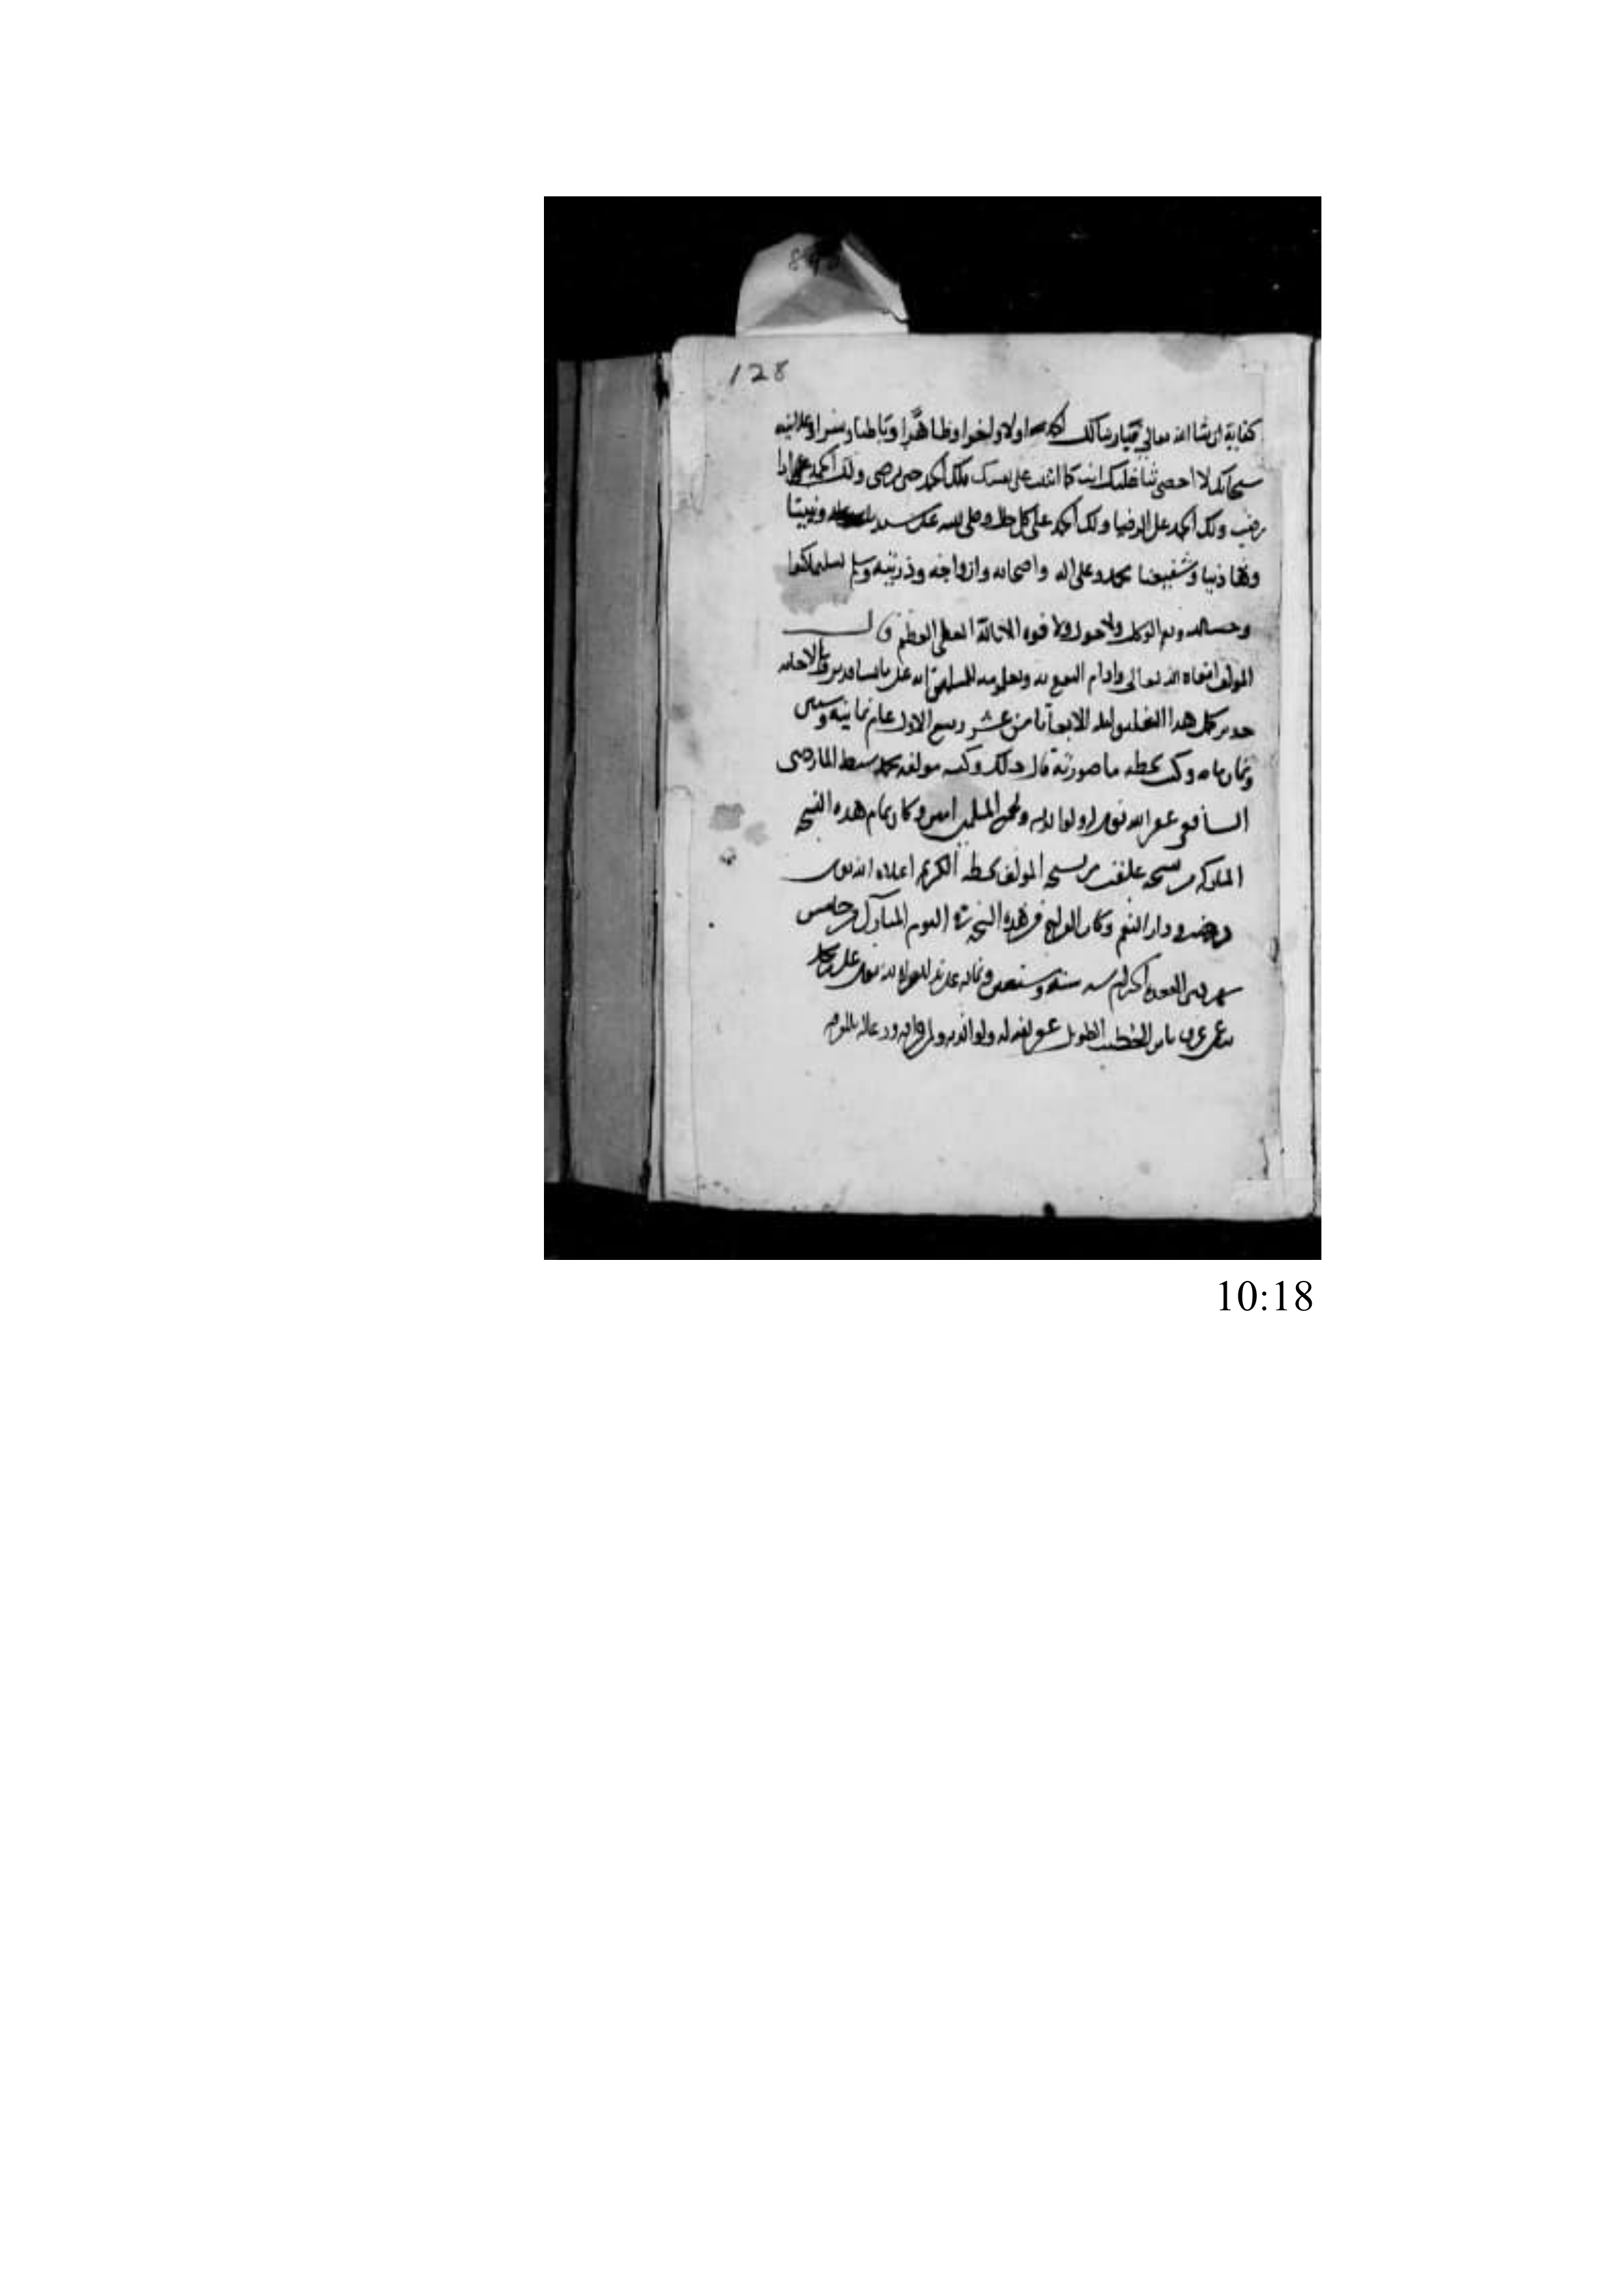 128
كفاية ان شا الله تعالى فيا ربنا لك الحمد اولا واخرا وظاهرا وباطنا وسرا وعلانية
سبحانك لا احصي ثنا عليك انت كما اثنيت على نفسك فلك الحمد حتى ترضى ولك الحمد اذا
رضيت ولك الحمد على الرضا ولك الحمد على كل حال وصلى الله على سيدنا ونبينا
وهادينا وشفيعنا محمد وعلى اله واصحابه وازواجه وذريته وسلم تسليما كثيرا
وحسبنا الله ونعم الوكيل ولا حول ولا قوة الا بالله العلي العظيم قال
المولف ابقاه الله تعالى وادام النفع به وبعلومه للمسلمين انه على ما يشا قدير وبالاجابة
جدير كمل هذا التعليق ليلة الاربعا ثامن عشر ربيع الاول عام ثمانية وستين
وثمان ماه وكتب بخطه ما صورته قال ذلك وكتبه مولفه محمد سبط المارديني
الشافعي غفر الله له ولوالديه ولجميع المسلمين امين وكان تمام هذه النسخة
المباركة من نسخة علقت من نسخة المولف بخطه الكريم اعلاه الله تعالى
وكان الفراغ من هذه النسخة اليوم المبارك خامس
شهر ذي القعدة الحرام سنة
الخطيب الطويل غفر الله له ولوالديه
10:18